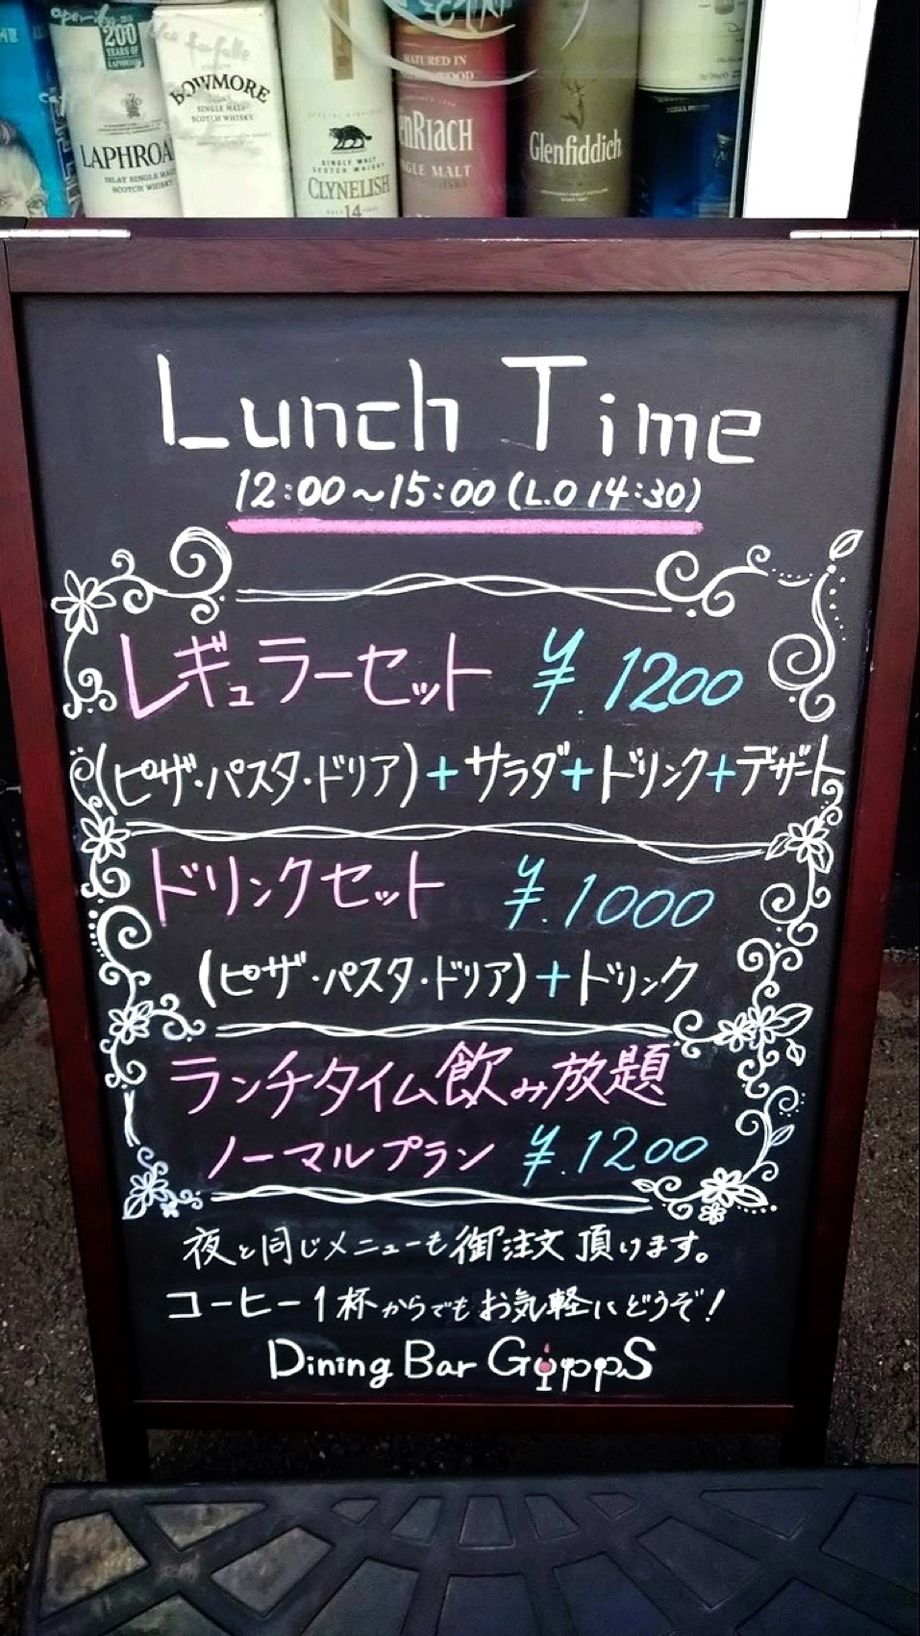 200
YEARS OF
LAPHROA
ISLAY SINGLE MAL
SCOTCH WHISKY
BOWMORE
SINGLE MALT
SCOTCH WHISKY
SINGLE MALT
SCOTCH WHISKY
CLYNELISH
14
MATURED IN
enRIACH
GLE MALT
Glenfiddich
Lunch Time
12:00~15:00(L.O 14:30)
レギュラーセット ¥.1200
(ピザ・パスタ・ドリア)+サラダ+ドリンク+デザート
ドリンクセット ¥.1000
(ピザ・パスタ・ドリア)+ドリンク
ランチタイム飲み放題
ノーマルプラン ¥.1200
夜と同じメニューも御注文頂けます。
コーヒー1杯からでもお気軽にどうぞ!
Dining Bar GuppS